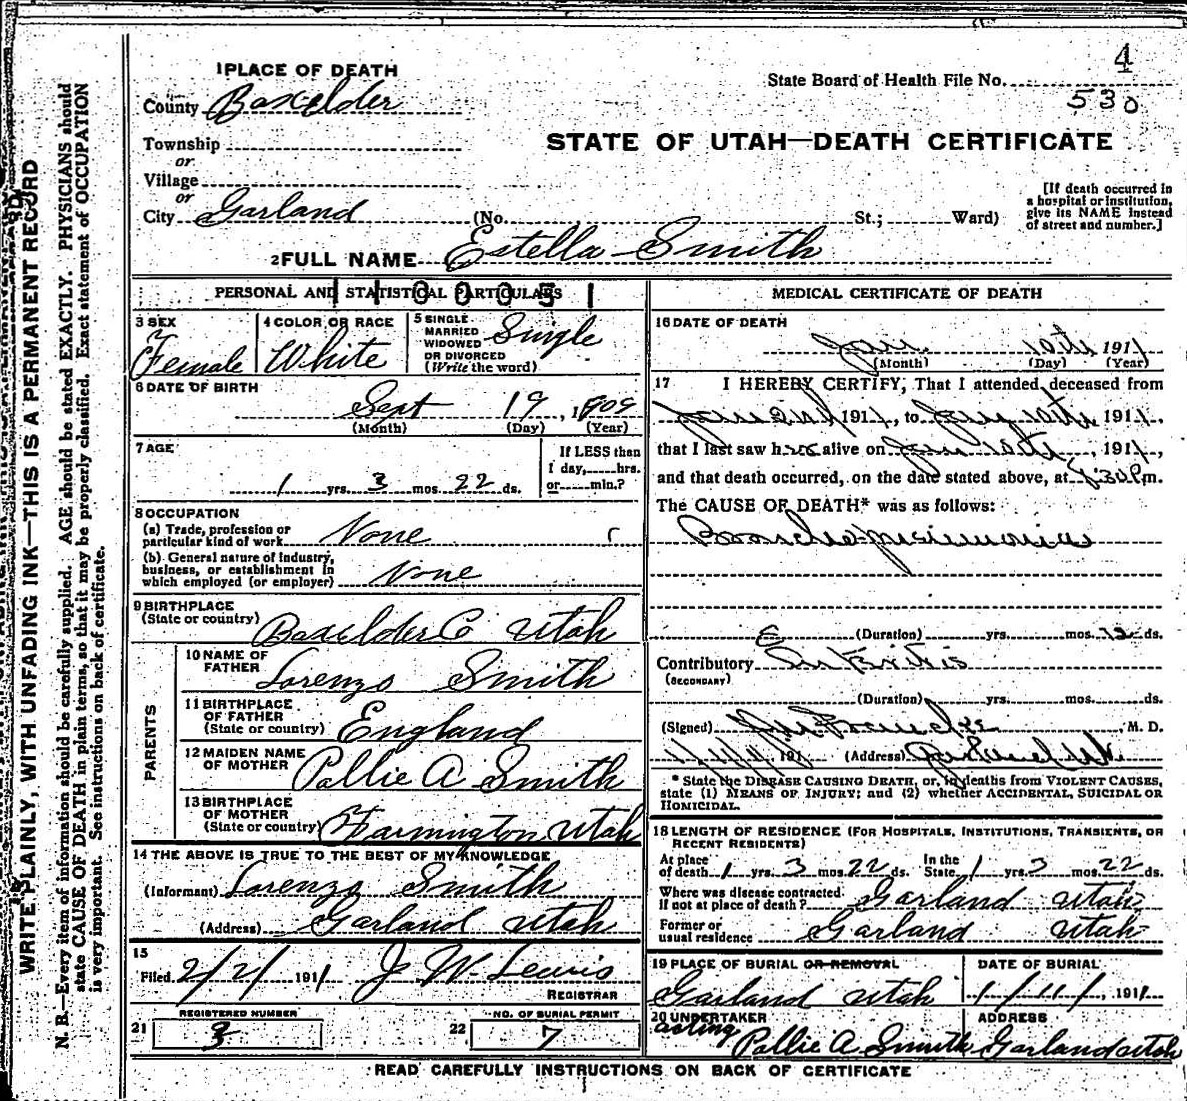 4
State Board of Health File No.
530
1 PLACE OF DEATH
County Boxelder
Township
or
Village
or
City Garland (No. St.; Ward)
STATE OF UTAH—DEATH CERTIFICATE
[If death occurred in
a hospital or institution,
give its NAME instead
of street and number.]
2 FULL NAME Estella Smith
PERSONAL AND STATISTICAL PARTICULARS
1100051
3 SEX
Female
4 COLOR OR RACE
White
5 SINGLE
MARRIED
WIDOWED
OR DIVORCED
(Write the word)
Single
6 DATE OF BIRTH
Sept 19, 1909
(Month) (Day) (Year)
7 AGE
1 yrs. 3 mos. 22 ds.
If LESS than
1 day, hrs.
or min.?
8 OCCUPATION
(a) Trade, profession or
particular kind of work None
(b) General nature of industry,
business, or establishment in
which employed (or employer) None
9 BIRTHPLACE
(State or country) Boxelder Co Utah
PARENTS
10 NAME OF
FATHER Lorenzo Smith
11 BIRTHPLACE
OF FATHER
(State or country) England
12 MAIDEN NAME
OF MOTHER Pollie A Smith
13 BIRTHPLACE
OF MOTHER
(State or country) Farmington Utah
14 THE ABOVE IS TRUE TO THE BEST OF MY KNOWLEDGE
(Informant) Lorenzo Smith
(Address) Garland Utah
15
Filed 2/2/ 1911 J W Lewis
REGISTRAR
21 REGISTERED NUMBER
3
22 NO. OF BURIAL PERMIT
7
MEDICAL CERTIFICATE OF DEATH
16 DATE OF DEATH
Jan 10th 1911
(Month) (Day) (Year)
17 I HEREBY CERTIFY, That I attended deceased from
1911, to 1911,
that I last saw her alive on 1911,
and that death occurred, on the date stated above, at m.
The CAUSE OF DEATH* was as follows:
Broncho-pneumonia
(Duration) yrs. mos. ds.
Contributory
(SECONDARY)
(Duration) yrs. mos. ds.
(Signed) , M. D.
191 (Address) Garland Ut
* State the DISEASE CAUSING DEATH, or, in deaths from VIOLENT CAUSES,
state (1) MEANS OF INJURY; and (2) whether ACCIDENTAL, SUICIDAL OR
HOMICIDAL.
18 LENGTH OF RESIDENCE (FOR HOSPITALS, INSTITUTIONS, TRANSIENTS, OR
RECENT RESIDENTS)
At place
of death 1 yrs. 3 mos. 22 ds.
In the
State 1 yrs. 3 mos. 22 ds.
Where was disease contracted
If not at place of death? Garland Utah
Former or
usual residence Garland Utah
19 PLACE OF BURIAL OR REMOVAL
Garland Utah
DATE OF BURIAL
1/11/, 1911
20 UNDERTAKER
acting Pollie A. Smith
ADDRESS
Garland Utah
READ CAREFULLY INSTRUCTIONS ON BACK OF CERTIFICATE
WRITE PLAINLY, WITH UNFADING INK—THIS IS A PERMANENT RECORD
N. B.—Every item of information should be carefully supplied. AGE should be stated EXACTLY. PHYSICIANS should
state CAUSE OF DEATH in plain terms, so that it may be properly classified. Exact statement of OCCUPATION
is very important. See instructions on back of certificate.